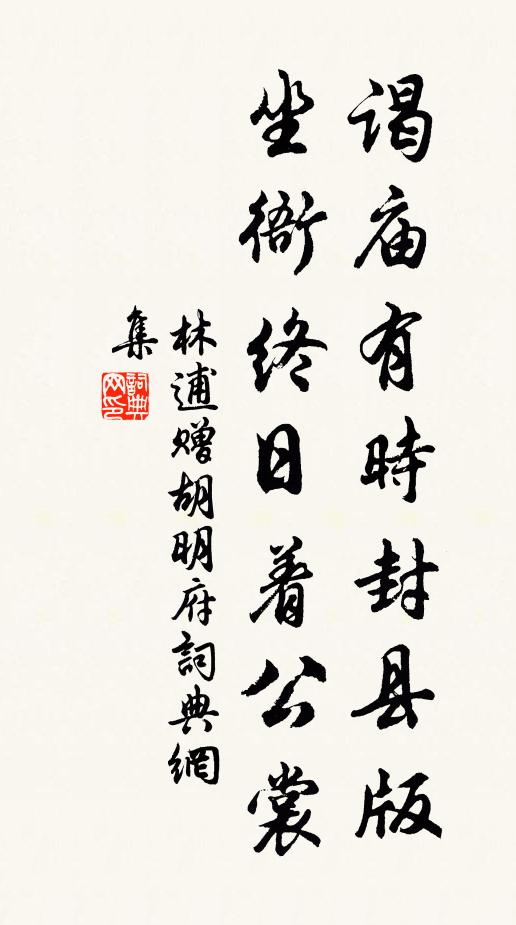 谒庙有時封县版
坐衙终日着公裳
林逋赠胡明府詞典網
集
詞典
网印